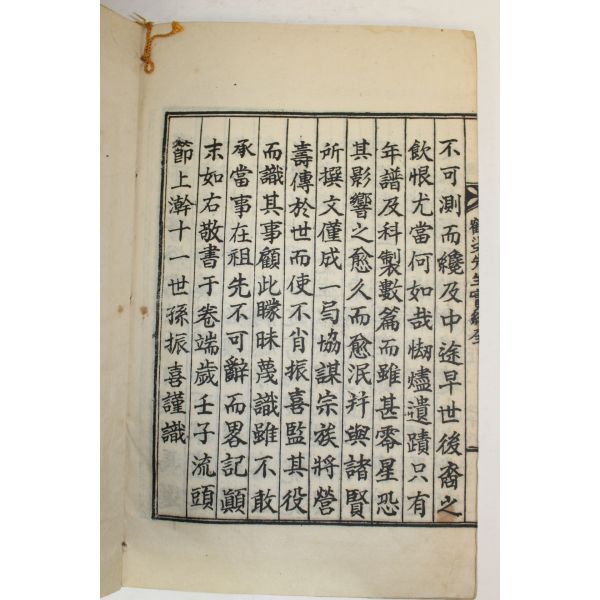 不可測而纔及中途早世後裔之
飮恨尤當何如哉刼燼遺蹟只有
年譜及科製數篇而雖甚零星恐
其影響之愈久而愈泯幷與諸賢
所撰文僅成一局協謀宗族將營
壽傳於世而使不肖振喜監其役
而識其事顧此矇昧蔑識雖不敢
承當事在祖先不可辭而畧記顚
末如右敬書于卷端歲壬子流頭
節上澣十一世孫振喜謹識
先生實紀全